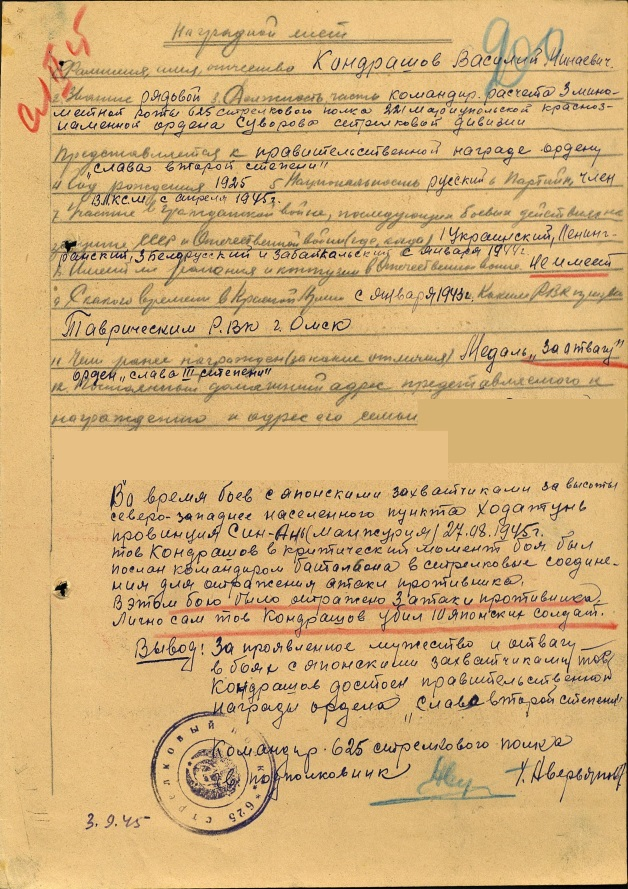 Наградной лист
200
Фамилия, имя, отчество Кондрашов Василий Минаевич.
2 Звание рядовой 3. Должность, часть командир расчета 3 мино-
метной роты 625 стрелкового полка 221 мариупольской красноз-
наменной ордена Суворова стрелковой дивизии
Представляется к правительственной награде ордену
"слава второй степени"
4 Год рождения 1925 5 Национальность русский 6 Партийн. член
ВЛКСМ с апреля 1945г.
7 Участие в гражданской войне, последующих боевых действиях по
защите СССР и Отечественной войне (где, когда) 1 Украинский, Ленинг-
радский, 3 Белорусский и Забайкальский с января 1944г.
8 Имеет ли ранения и контузии в Отечественной войне не имеет
9 С какого времени в Красной Армии с января 1943г. Каким РВК призван
Таврическим РВк г. Омск
11 Чем ранее награжден (за какие отличия) Медаль "За отвагу"
орден "слава III степени"
12 Постоянный домашний адрес представляемого к
награждению и адрес его семьи
Во время боев с японскими захватчиками за высоты
северо-западнее населенного пункта Ходатунь
провинция Син-Ань (манжурия) 27.08.1945г.
тов Кондрашов в критический момент боя был
послан командиром батольона в стрелковые соедине-
ния для отражения атаки противника.
В этом бою было отражено 3 атаки противника.
Лично сам тов Кондрашов убил 10 японских солдат.
Вывод: За проявленное мужество и отвагу
в боях с японскими захватчиками тов
Кондрашов достоен правительственной
награды ордена "слава второй степени"
Командир 625 стрелкового полка
подполковник Аверьянов
625 СТРЕЛКОВЫЙ ПОЛК
3.9.45